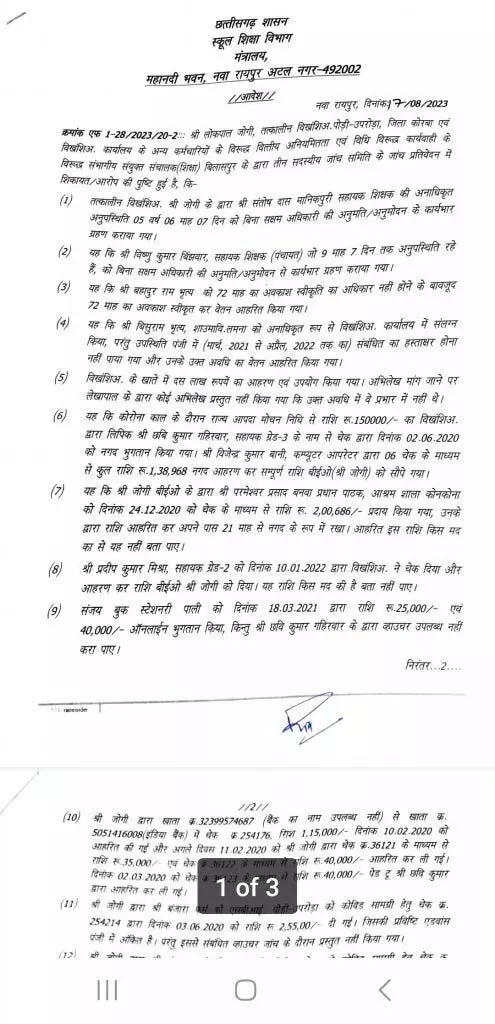 छत्तीसगढ़ शासन
स्कूल शिक्षा विभाग
मंत्रालय,
महानदी भवन, नवा रायपुर अटल नगर-492002
//आदेश//
नवा रायपुर, दिनांक 17/08/2023
क्रमांक एफ 1-28/2023/20-2::: श्री लोकपाल जोगी, तत्कालीन विखंशिअ.पोड़ी-उपरोड़ा, जिला कोरबा एवं
विखंशिअ. कार्यालय के अन्य कर्मचारियों के विरूद्ध वित्तीय अनियमितता एवं विधि विरूद्ध कार्यवाही के
विरूद्ध संभागीय संयुक्त संचालक(शिक्षा) बिलासपुर के द्वारा तीन सदस्यीय जांच समिति के जांच प्रतिवेदन में
शिकायत/आरोप की पुष्टि हुई है, कि-
(1) तत्कालीन विखंशिअ. श्री जोगी के द्वारा श्री संतोष दास मानिकपुरी सहायक शिक्षक की अनाधिकृत
अनुपस्थिति 05 वर्ष 06 माह 07 दिन को बिना सक्षम अधिकारी की अनुमति/अनुमोदन के कार्यभार
ग्रहण कराया गया।
(2) यह कि श्री विष्णु कुमार बिंझवार, सहायक शिक्षक (पंचायत) जो 9 माह 7 दिन तक अनुपस्थिति रहे
हैं, को बिना सक्षम अधिकारी की अनुमति/अनुमोदन से कार्यभार ग्रहण कराया गया।
(3) यह कि श्री बहादुर राम भृत्य को 72 माह का अवकाश स्वीकृति का अधिकार नहीं होने के बावजूद
72 माह का अवकाश स्वीकृत कर वेतन आहरित किया गया।
(4) यह कि श्री बिसुराम भृत्य, शाउमावि.लमना को अनाधिकृत रूप से विखंशिअ. कार्यालय में संलग्न
किया, परंतु उपस्थिति पंजी में (मार्च, 2021 से अप्रैल, 2022 तक का) संबंधित का हस्ताक्षर होना
नहीं पाया गया और उनके उक्त अवधि का वेतन आहरित किया गया।
(5) विखंशिअ. के खाते में दस लाख रूपये का आहरण एवं उपयोग किया गया। अभिलेख मांग जाने पर
लेखापाल के द्वारा कोई अभिलेख प्रस्तुत नहीं किया गया कि उक्त अवधि में वे प्रभार में नहीं थे।
(6) यह कि कोरोना काल के दौरान राज्य आपदा मोचन निधि से राशि रू.150000/- का विखंशिअ.
द्वारा लिपिक श्री छबि कुमार गहिरवार, सहायक ग्रेड-3 के नाम से चेक द्वारा दिनांक 02.06.2020
को नगद भुगतान किया गया। श्री विजेन्द्र कुमार बानी, कम्प्युटर आपरेटर द्वारा 06 चेक के माध्यम
से कुल राशि रू.1,38,968 नगद आहरण कर सम्पूर्ण राशि बीईओ(श्री जोगी) को सौंपे गया।
(7) यह कि श्री जोगी बीईओ के द्वारा श्री परमेश्वर प्रसाद बनवा प्रधान पाठक, आश्रम शाला कोनकोना
को दिनांक 24.12.2020 को चेक के माध्यम से राशि रू. 2,00,686/- प्रदाय किया गया, उनके
द्वारा राशि आहरित कर अपने पास 21 माह से नगद के रूप में रखा। आहरित इस राशि किस मद
का से यह नहीं बता पाए।
(8) श्री प्रदीप कुमार मिश्रा, सहायक ग्रेड-2 को दिनांक 10.01.2022 द्वारा विखंशिअ. ने चेक दिया और
आहरण कर राशि बीईओ श्री जोगी को दिया। यह राशि किस मद की है बता नहीं पाए।
(9) संजय बुक स्टेशनरी पाली को दिनांक 18.03.2021 द्वारा राशि रू.25,000/- एवं
40,000/- ऑनलाईन भुगतान किया, किन्तु श्री छवि कुमार गहिरवार के द्वारा व्हाउचर उपलब्ध नहीं
करा पाए।
निरंतर...2....
//2//
(10) श्री जोगी द्वारा खाता क्र.32399574687 (बैंक का नाम उपलब्ध नहीं) से खाता क्र.
5051416008(इंडिया बैंक) में चेक क्र.254176, राशि 1,15,000/- दिनांक 10.02.2020 को
आहरित की गई और अगले दिवस 11.02.2020 को श्री जोगी द्वारा चेक क्र.36121 के माध्यम से
राशि रू.35,000/- एवं चेक क्र.36122 के माध्यम से राशि रू.40,000/- आहरित कर ली गई।
दिनांक 02.03.2020 को चेक राशि रू.40,000/- पेड टू श्री छवि कुमार
द्वारा आहरित कर ली गई।
1 of 3
(11) श्री जोगी द्वारा श्री बंजारा फर्म को पोड़ी-उपरोड़ा को कोविड सामग्री हेतु चेक क्र.
254214 द्वारा दिनांक 03.06.2020 को राशि रू 2,55,00/- दी गई। जिसकी प्रविष्टि एडवांस
पंजी में अंकित है। परंतु इससे संबंधित व्हाउचर जांच के दौरान प्रस्तुत नहीं किया गया।
(12)